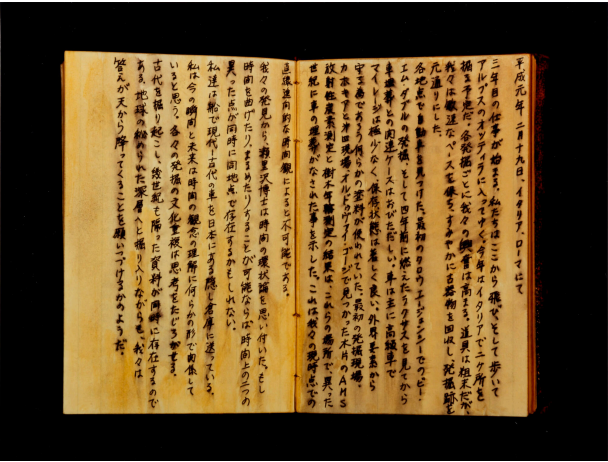 平成元年 二月十九日、イタリア、ローマにて
三年目の仕事が始まる。私たちはここから飛び、そして歩いて
アルプスのオッティラに入ってゆく。今年はイタリアで二ケ所を
掘る予定だ。各発掘ごとに我々の興奮は高まる。道具は粗末だが、
我々は敏速なペースを保ち、すみやかに古器物を回収し、発掘跡を
元通りにした。
各地点で自動車を見つけた。最初のクロウ・エージェンシーでのビー・
エム・ダブルの発掘、そして四年前に燃えたラクサスを見てから
車埋葬との関連ケースはおびただしい。車は主に高級車で
マイレージは極少なく、保存状態は著しく良い。外界要素から
守る為であろう何らかの塗料が使われていた。最初の発掘現場
カホキアと沖田現場、オルドウヴァイ・ゴージで見つかった木片のAHS
放射性炭素測定と樹木年輪測定の結果は、これらの場所で、異った
世紀に車の埋葬がなされた事を示した。これは我々の現時点での
直線進向的な時間観によると不可能である。
我々の発見から、瀬里沢博士は時間の環状論を思い付いた。もし
時間を曲げたり、まるめたりすることが可能ならば時間上の二つの
異った点が同時に同地点で存在するかもしれない。
私達は船で現代-古代の車を日本にある隠し倉庫に送っている。
私は今の瞬間と未来は時間の観念の理解に何らかの形で関係して
いると思う。各々の発掘の文化重複は思考をたじろがせる。
古代を掘り起こし、幾世紀も隔った資料が同時に存在するので
ある。地球の秘められた深層へと掘り入りながらも、我々は
答えが天から降ってくることを願いつづけるかのようだ。